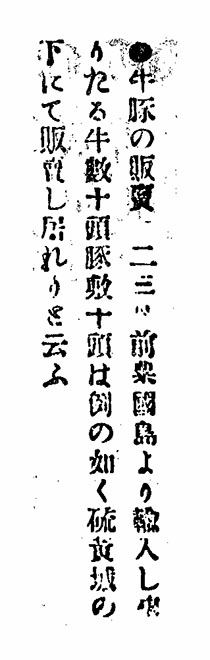 ●牛豚の販賣 二三日前粟國島より輸入し來
りたる牛數十頭豚數十頭は例の如く硫黄城の
下にて販賣し居れりと云ふ